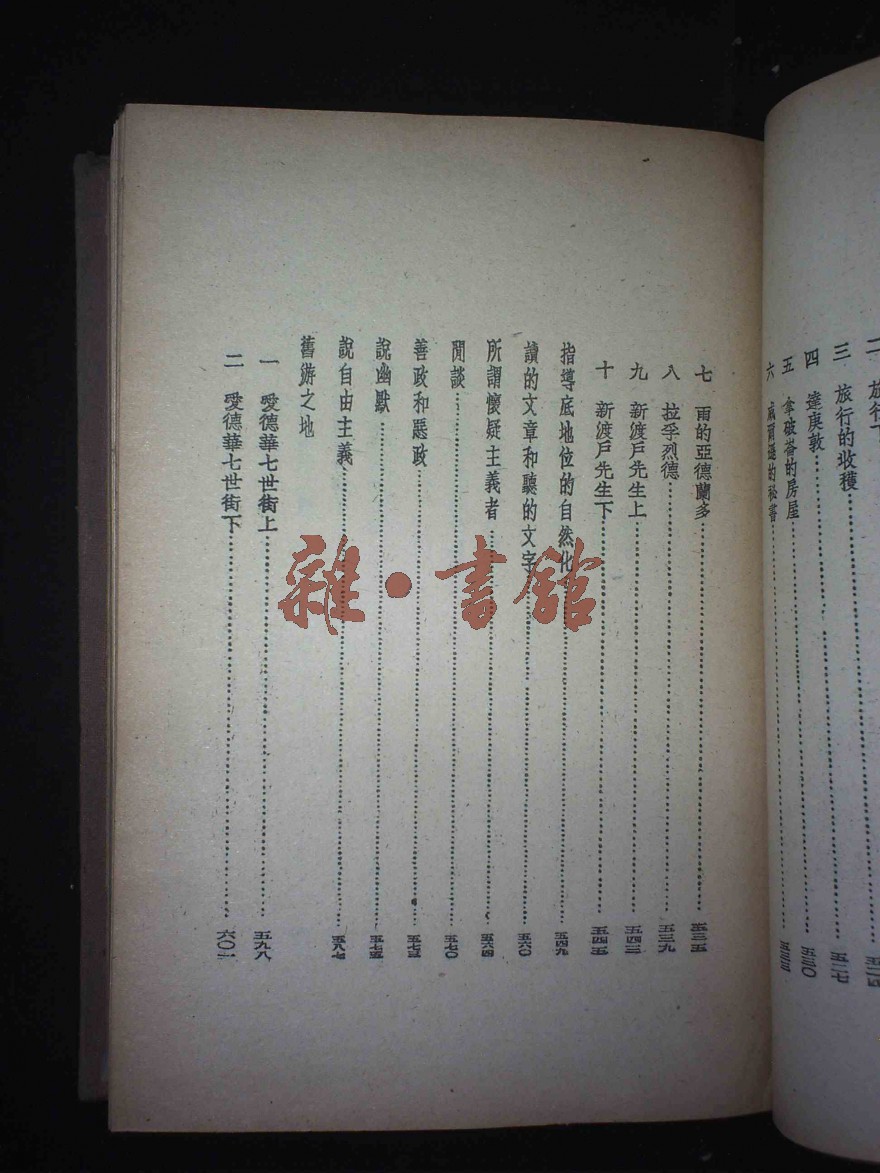 三 旅行的收穫……五二七
四 達庚敦……五三〇
五 拿破崙的房屋
六 威爾遜的秘書
七 雨的亞德蘭多……五三五
八 拉孚烈德……五三九
九 新渡戶先生上……五四二
十 新渡戶先生下……五四五
指導底地位的自然化……五四九
讀的文章和聽的文字……五六〇
所謂懷疑主義者……五六四
閒談……五七〇
善政和惡政……五七三
說幽默……五七五
說自由主義……五八七
舊游之地
一 愛德華七世街上……五九八
二 愛德華七世街下……六〇一
雜·書館